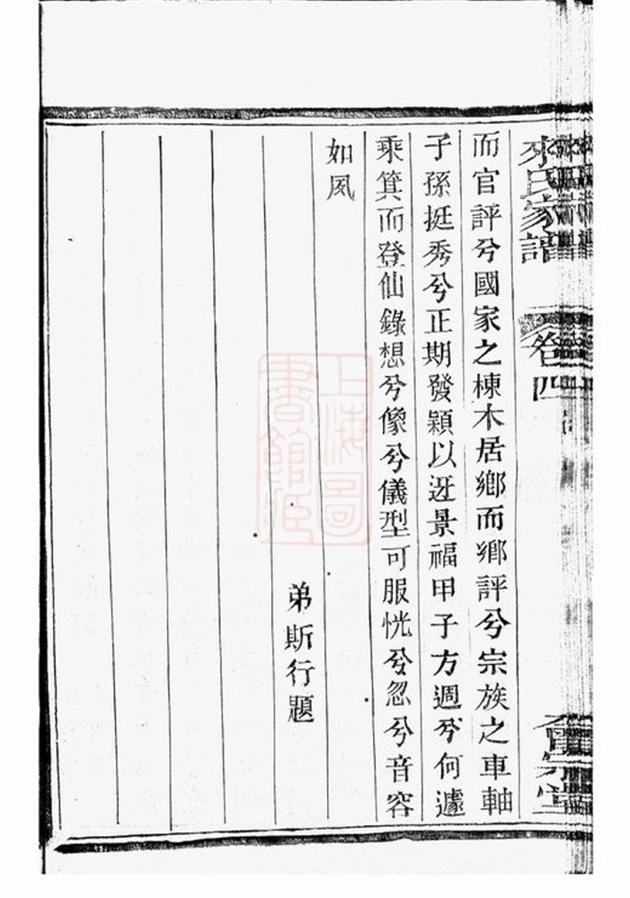 來氏家譜 卷四 會宗堂
而官評兮國家之棟木居鄉而鄉評兮宗族之車軸
子孫挺秀兮正期發穎以迓景福甲子方週兮何遽
乘箕而登仙錄想兮像兮儀型可服恍兮忽兮音容
如夙
弟斯行題
上海圖書館藏